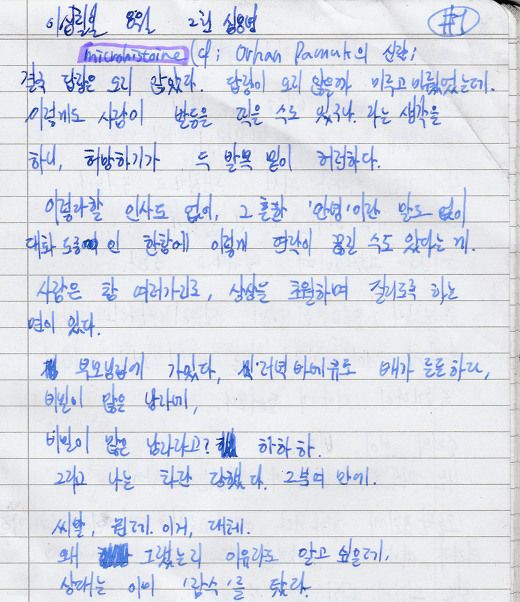 이십칠일 8월 2천 십오년
#1
microhistoire (cf; Orhan Pamuk의 신간;
결국 답장은 오지 않았다. 답장이 오지 않을까 미루고 미뤘었는데.
이렇게도 사람이 발등을 찍을 수도 있구나. 라는 생각을
하니, 허망하기가 두 발목 밑이 허전하다.
이렇다할 인사도 없이, 그 흔한 '안녕'이란 말도 없이
대화 도중인 한황에 이렇게 연락이 끊길 수도 있다는 게.
사람은 참 여러가지로, 상상을 초월하며 질리도록 하는
면이 있다.
부모님댁에 가있다, 저녁 바베큐로 배가 든든하다,
비밀이 많은 남자네,
비밀이 많은 남자라고? 하하하.
그리고 나는 차단 당했다. 그부며 만에.
씨발, 뭔데. 이거, 대체.
왜 그랬는지 이유라도 알고 싶은데,
상대는 이미 '잠수'를 탔다.